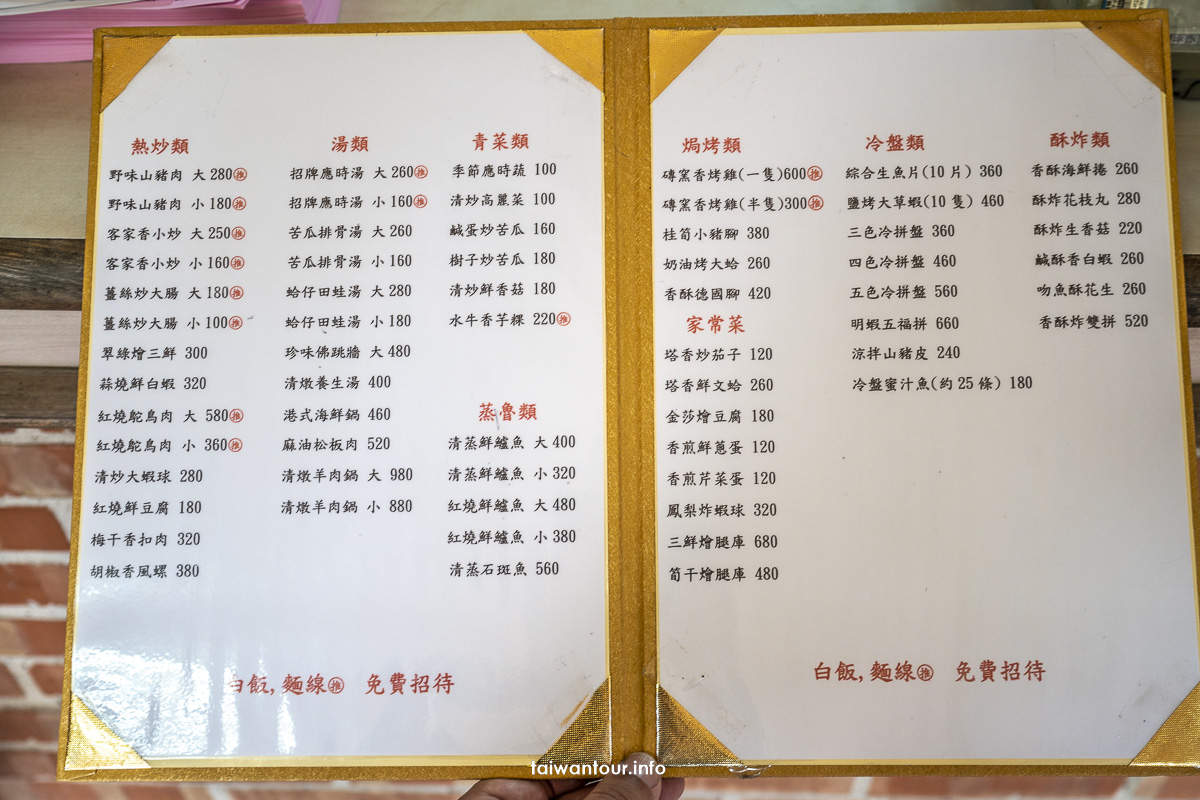 熱炒類
野味山豬肉 大 280㊡推
野味山豬肉 小 180推
客家香小炒 大 250推
客家香小炒 小 160推
薑絲炒大腸 大 180推
薑絲炒大腸 小 100推
翠綠燴三鮮 300
蒜燒鮮白蝦 320
紅燒鴕鳥肉 大 580推
紅燒鴕鳥肉 小 360推
清炒大蝦球 280
紅燒鮮豆腐 180
梅干香扣肉 320
胡椒香風螺 380
湯類
招牌應時湯 大 260推
招牌應時湯 小 160推
苦瓜排骨湯 大 260
苦瓜排骨湯 小 160
蛤仔田蛙湯 大 280
蛤仔田蛙湯 小 180
珍味佛跳牆 大 480
清燉養生湯 400
港式海鮮鍋 460
麻油松板肉 520
清燉羊肉鍋 大 980
清燉羊肉鍋 小 880
青菜類
季節應時蔬 100
清炒高麗菜 100
鹹蛋炒苦瓜 160
樹子炒苦瓜 180
清炒鮮香菇 180
水牛香芋粿 220推
蒸魯類
清蒸鮮鱸魚 大 400
清蒸鮮鱸魚 小 320
紅燒鮮鱸魚 大 480
紅燒鮮鱸魚 小 380
清蒸石斑魚 560
白飯,麵線推 免費招待
焗烤類
磚窯香烤雞(一隻)600推
磚窯香烤雞(半隻)300推
桂筍小豬腳 380
奶油烤大蛤 260
香酥德國腳 420
家常菜
塔香炒茄子 120
塔香鮮文蛤 260
金莎燴豆腐 180
香煎鮮蔥蛋 120
香煎芹菜蛋 120
鳳梨炸蝦球 320
三鮮燴腿庫 680
筍干燴腿庫 480
冷盤類
綜合生魚片(10 片) 360
鹽烤大草蝦(10 隻) 460
三色冷拼盤 360
四色冷拼盤 460
五色冷拼盤 560
明蝦五福拼 660
涼拌山豬皮 240
冷盤蜜汁魚(約 25 條) 180
酥炸類
香酥海鮮捲 260
酥炸花枝丸 280
酥炸生香菇 220
鹹酥香白蝦 260
吻魚酥花生 260
香酥炸雙拼 520
白飯,麵線推 免費招待
taiwantour.info